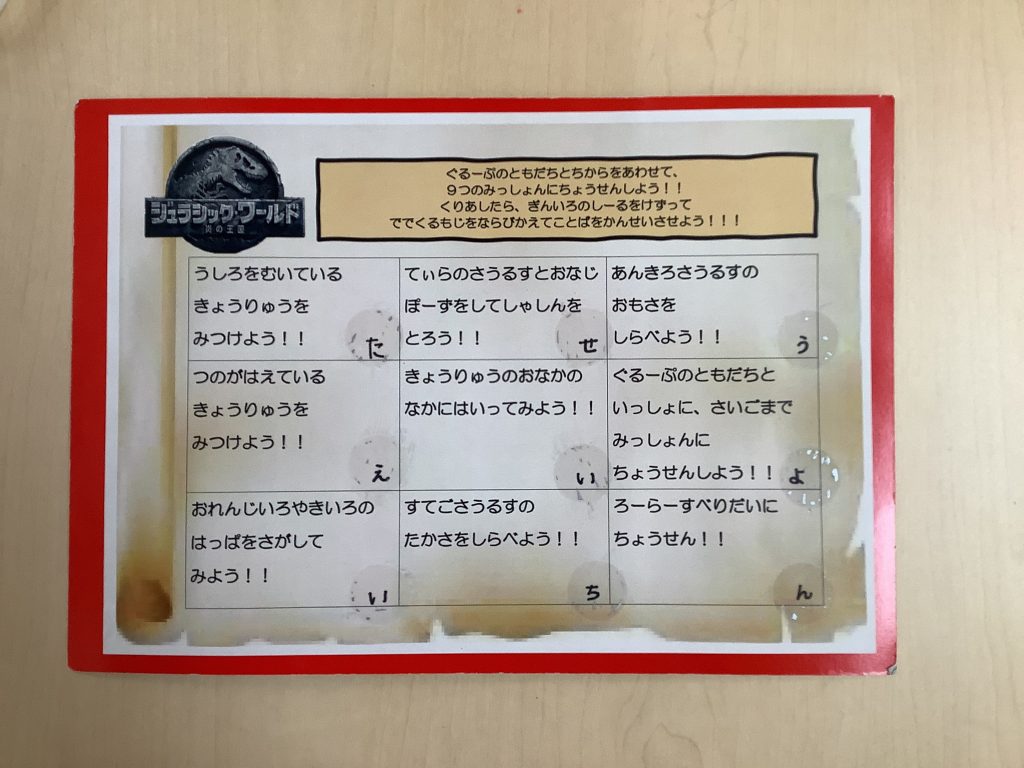 ジュラシック・ワールド
炎の王国
ぐるーぷのともだちとちからをあわせて、
９つのみっしょんにちょうせんしよう！！
くりあしたら、ぎんいろのしーるをけずって
ででくるもじをならびかえてことばをかんせいさせよう！！！
うしろをむいている
きょうりゅうを
みつけよう！！
た
てぃらのさうるすとおなじ
ぽーずをしてしゃしんを
とろう！！
せ
あんきろさうるすの
おもさを
しらべよう！！
う
つのがはえている
きょうりゅうを
みつけよう！！
え
きょうりゅうのおなかの
なかにはいってみよう！！
い
ぐるーぷのともだちと
いっしょに、さいごまで
みっしょんに
ちょうせんしよう！！
よ
おれんじいろやきいろの
はっぱをさがして
みよう！！
い
すてごさうるすの
たかさをしらべよう！！
ち
ろーらーすべりだいに
ちょうせん！！
ん